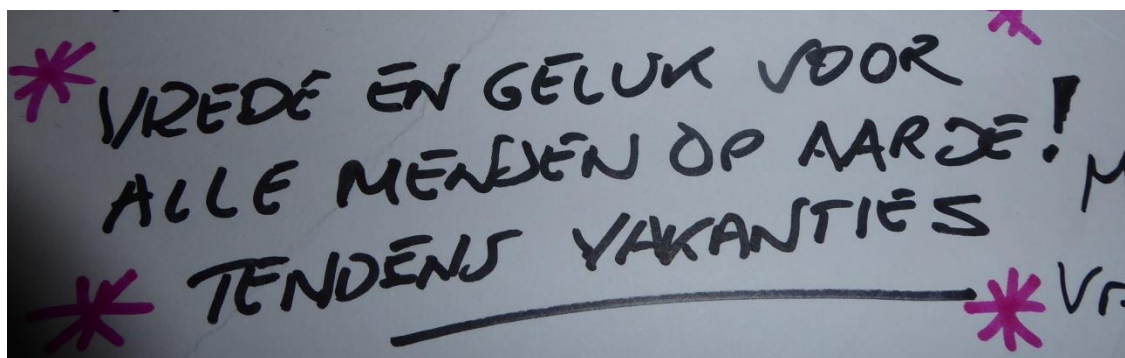 VREDE EN GELUK VOOR
ALLE MENSEN OP AARDE!
TENDENS VAKANTIES